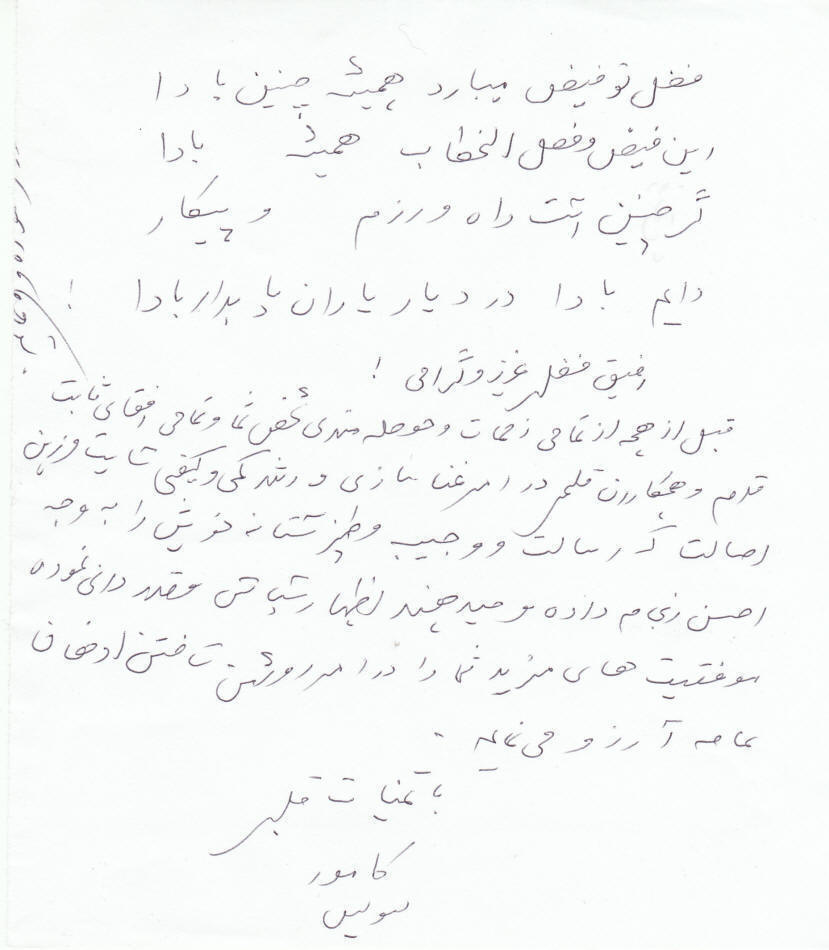 فضل توفیض میبارد همیشه چنین بادا
این فیض و فصل الخطاب همیشه بادا
گر چنین است راه و رزم و پیکار
دایم بادا در دیار یاران پایدار بادا !
رفیق فضل عزیز و گرامی !
قبل از همه از تمامی زحمات و حوصله مندی شخص شما و تمامی رفقای ثابت
قدم و همکاران قلمی در امر غنا سازی و رشد کمی و کیفی سایت وزین
اصالت که رسالت و وجیب وطنپرستانه خویش را به وجه
احسن انجام داده و میدهند اظهار سپاس و قدردانی نموده
موفقیت های مزید شما را در امر روشن ساختن اذهان
عامه آرزو می نمایم .
با تمنیات قلبی
کامور
سویس